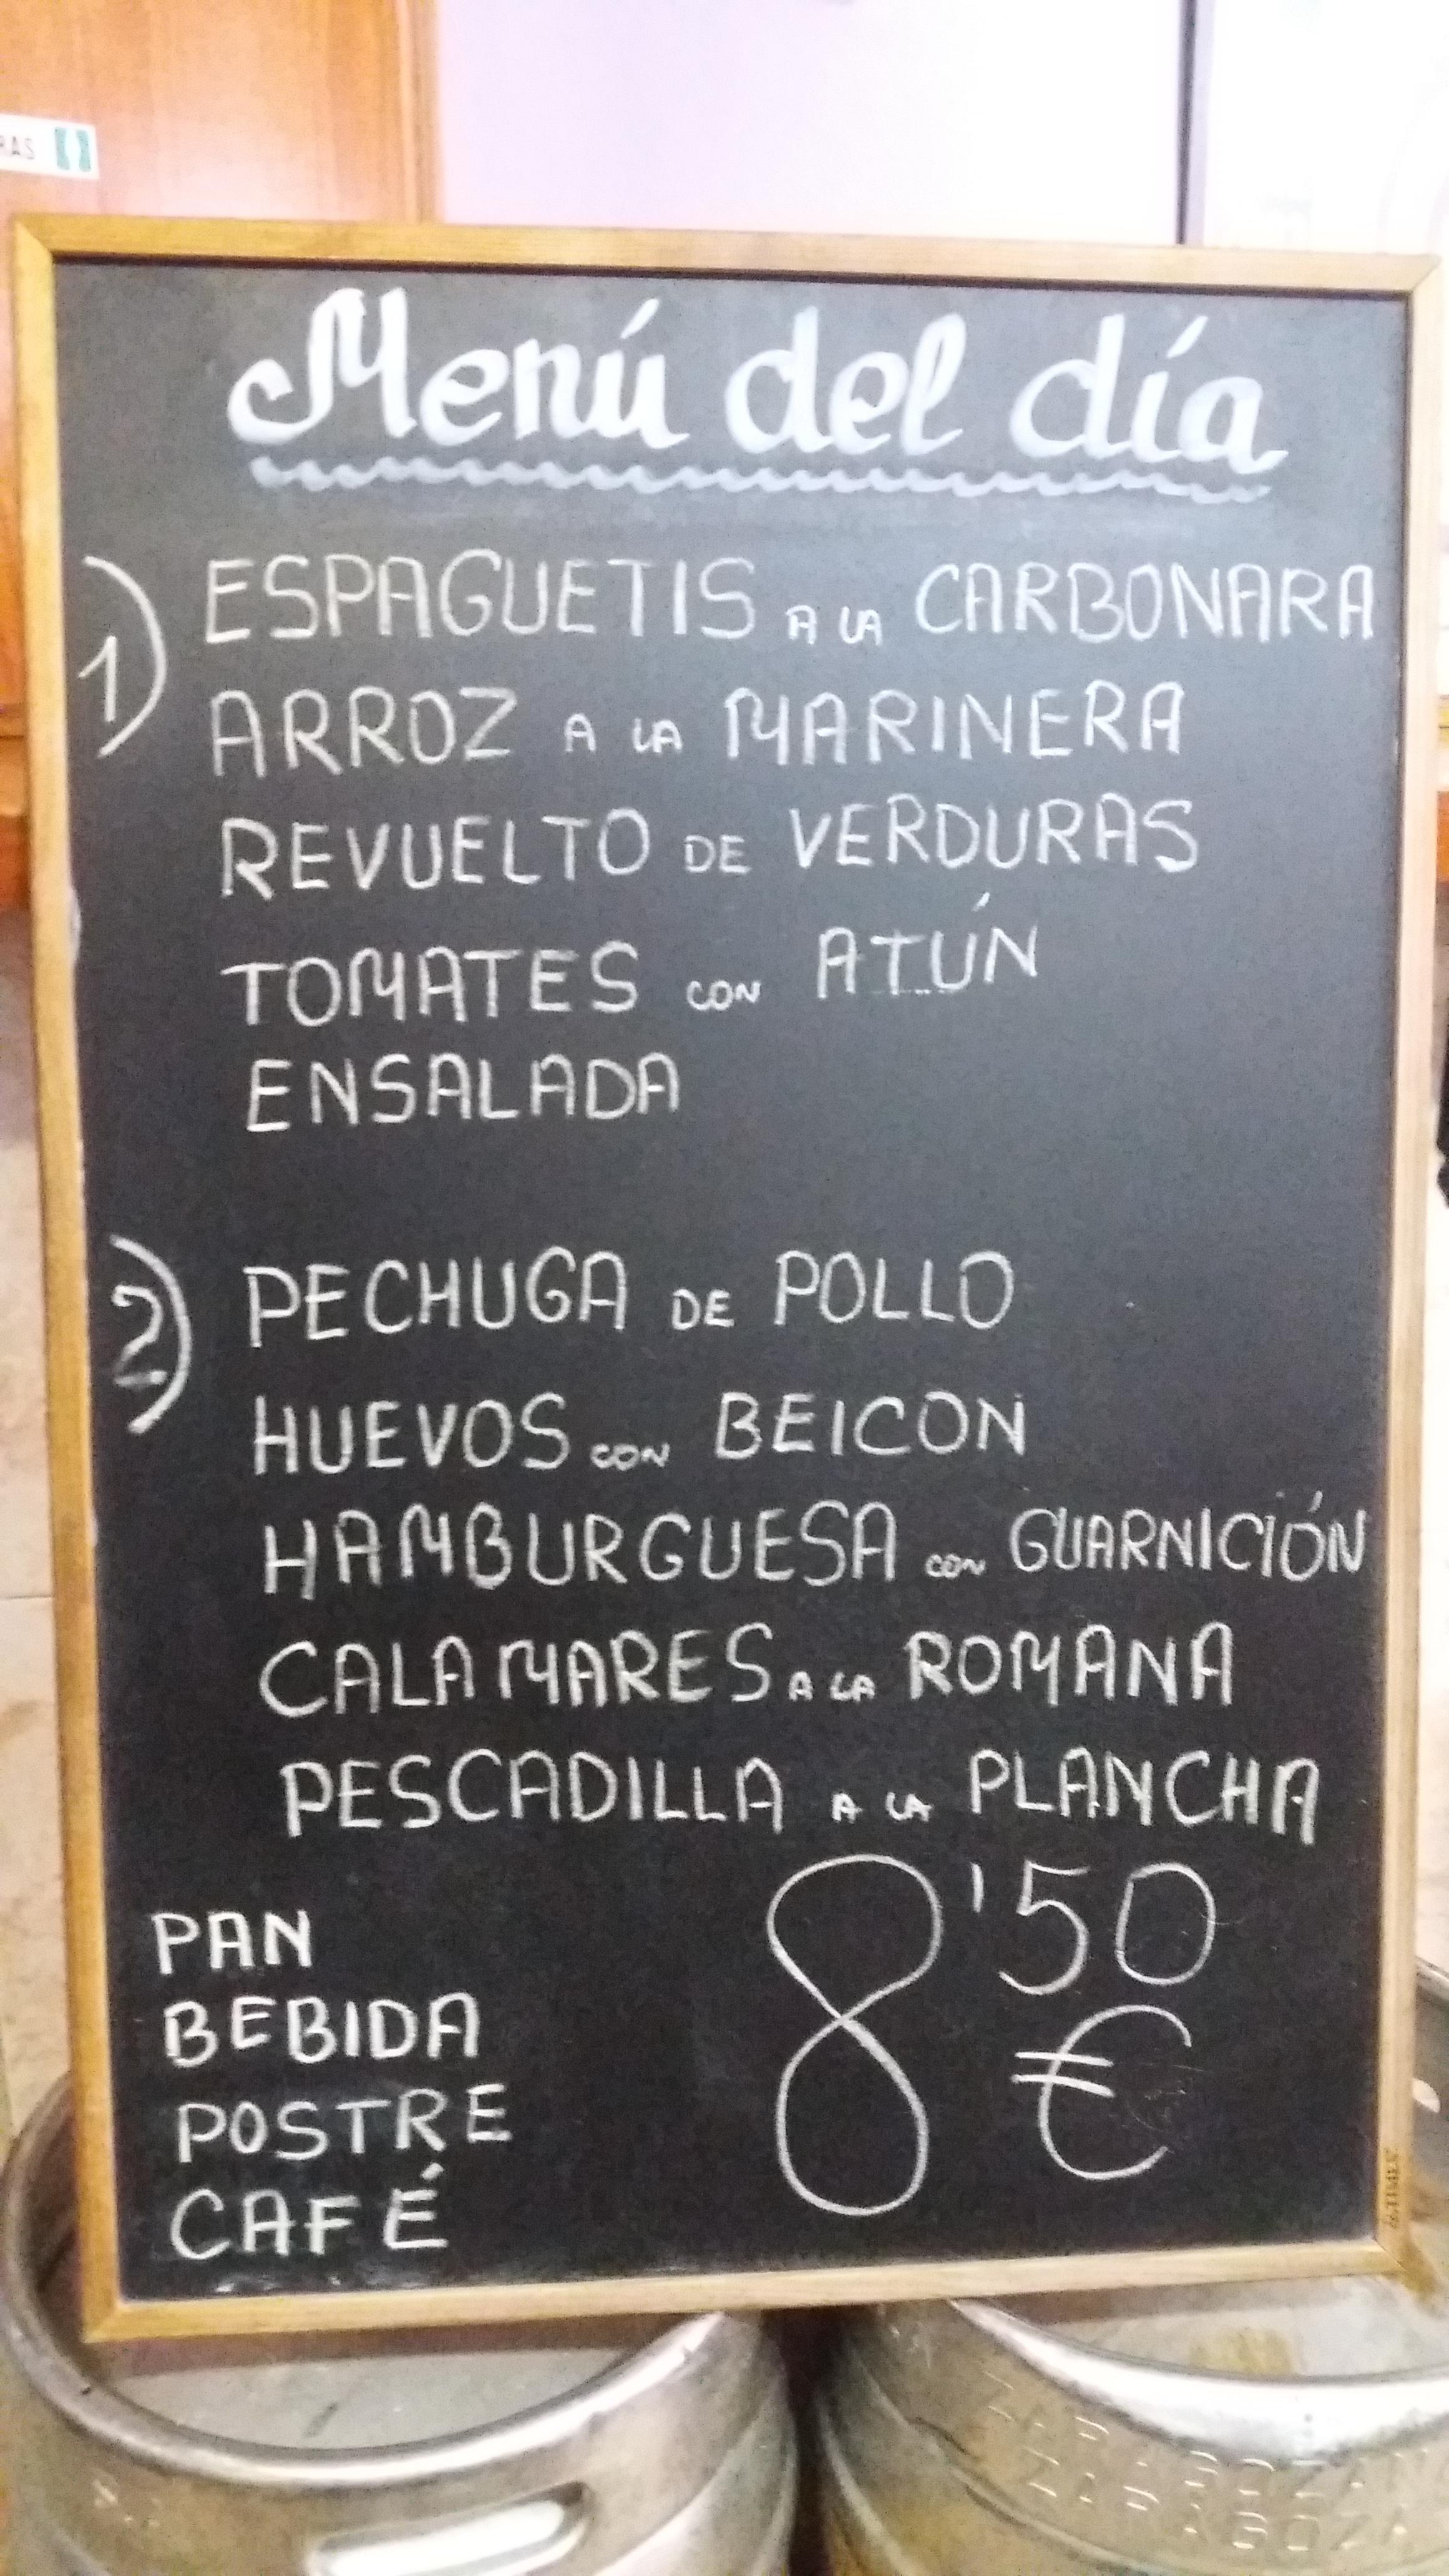 RAS
Menú del día
1) ESPAGUETIS A LA CARBONARA
ARROZ A LA MARINERA
REVUELTO DE VERDURAS
TOMATES CON ATÚN
ENSALADA
2) PECHUGA DE POLLO
HUEVOS CON BEICON
HAMBURGUESA CON GUARNICIÓN
CALAMARES A LA ROMANA
PESCADILLA A LA PLANCHA
PAN
BEBIDA
POSTRE
CAFÉ
8'50
€
ZARAGOZA